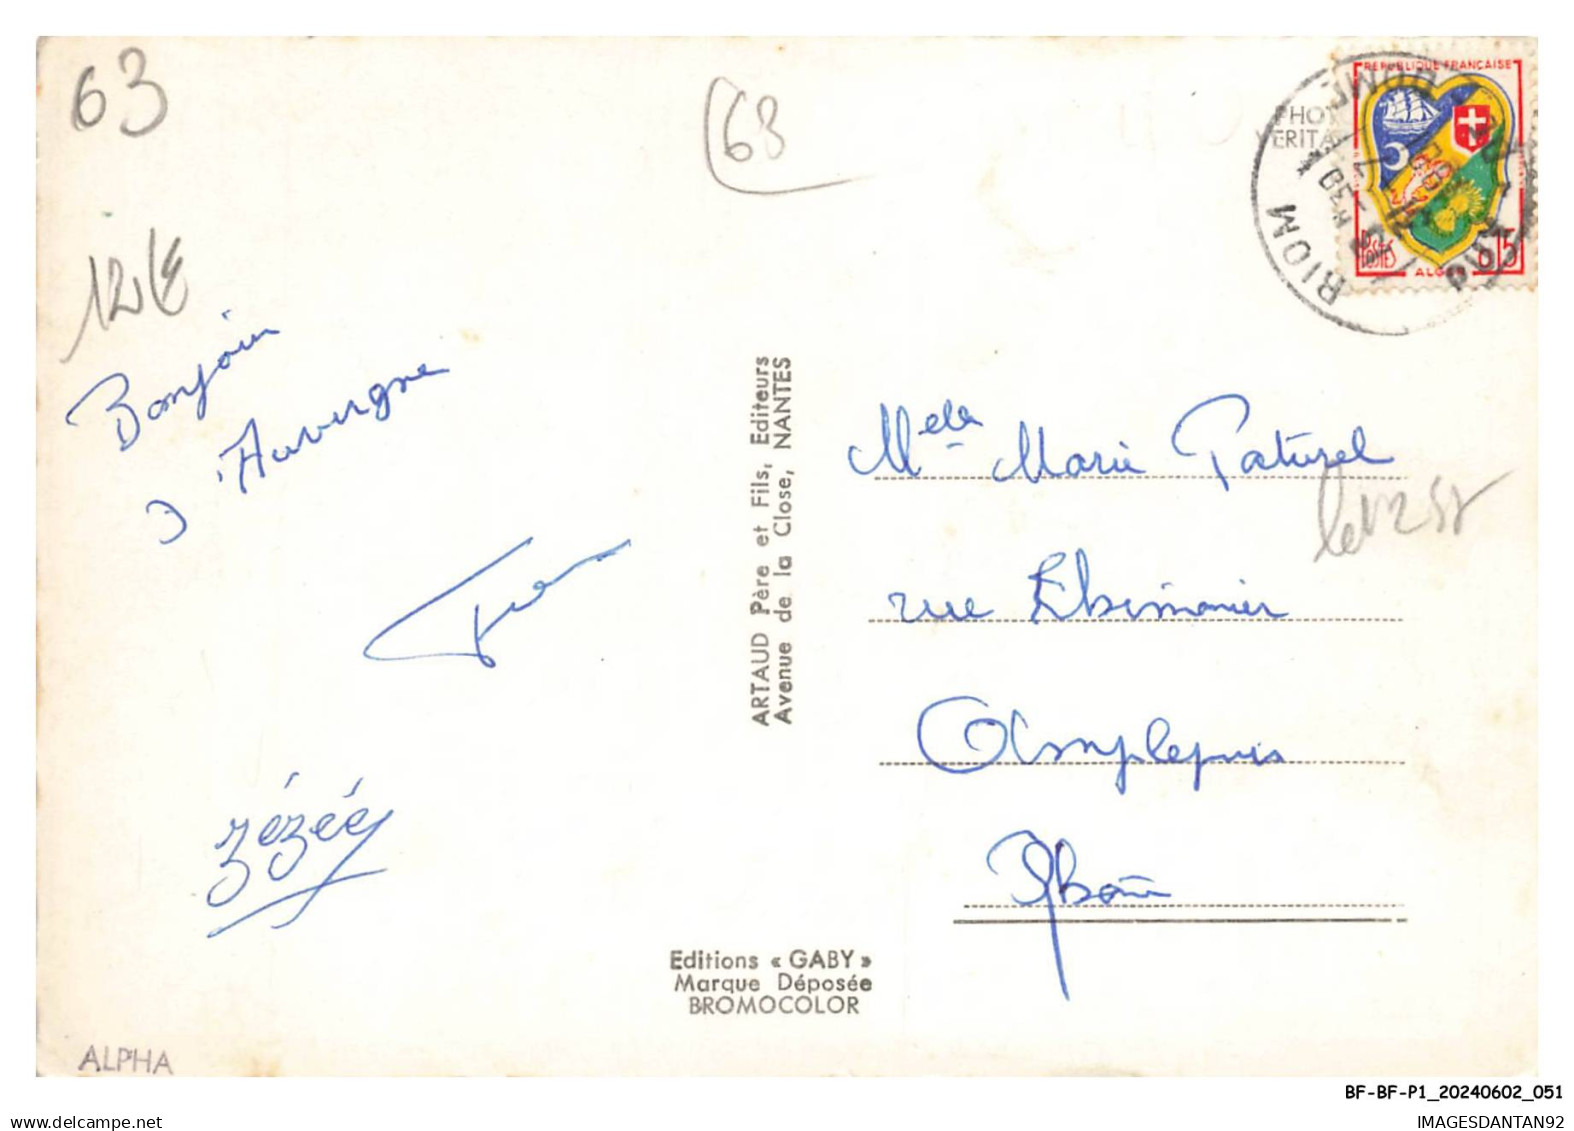 63
63
12 €
PHO
ERITA
REPUBLIQUE FRANÇAISE
POSTES
ALGER
0,15
RIOM
Bonjour
d'Auvergne
zézée
ARTAUD Père et Fils, Editeurs
Avenue de la Close, NANTES
Melle Marie Paturel
rue
Amplepuis
Rhône
Editions « GABY »
Marque Déposée
BROMOCOLOR
ALPHA
BF-BF-P1_20240602_051
IMAGESDANTAN92